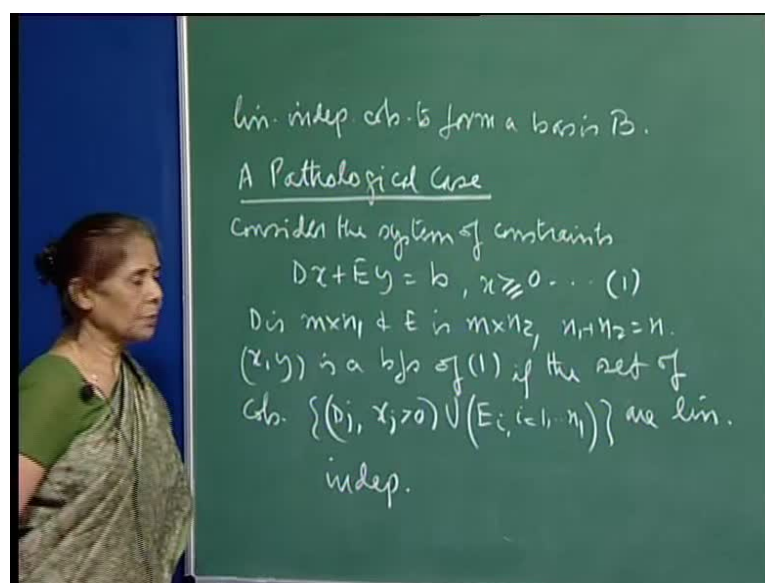 lin. indep. cols. to form a basis B.
A Pathological Case
Consider the system of constraints
Dx + Ey = b, x ≥ 0 . . . (1)
D is m×n₁ & E is m×n₂, n₁+n₂=n.
(x,y) is a bfs of (1) if the set of
cols. {(Dj, xj>0) ∪ (Ei, i=1,..n₁)} are lin.
indep.